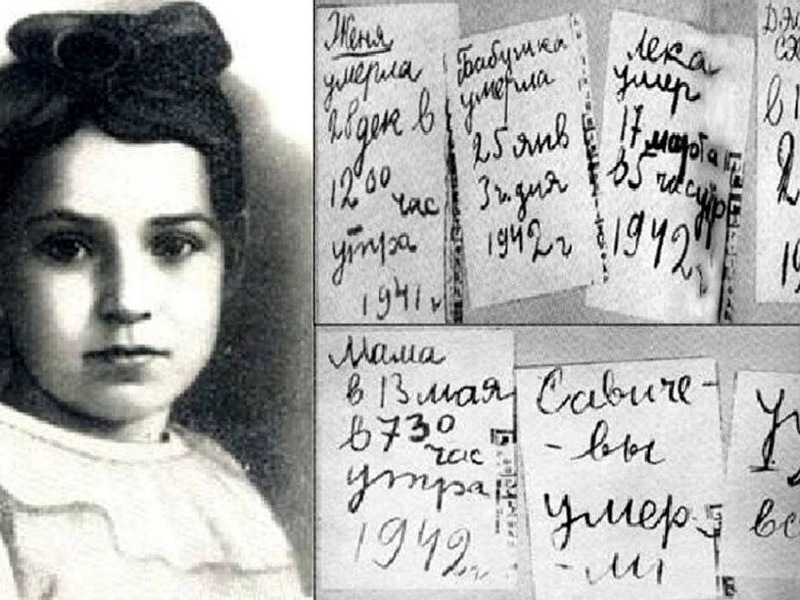 Женя
умерла
28 дек в
12 00 час
утра
1941 г
Бабушка
умерла
25 янв
3 ч. дня
1942 г
Лека
умер
17 марта
в 5 час утр
1942 г
в 1
2
19
Мама
в 13 мая
в 7 30
час
утра
1942 г
Савиче-
-вы
умер-
-ли
У
вс